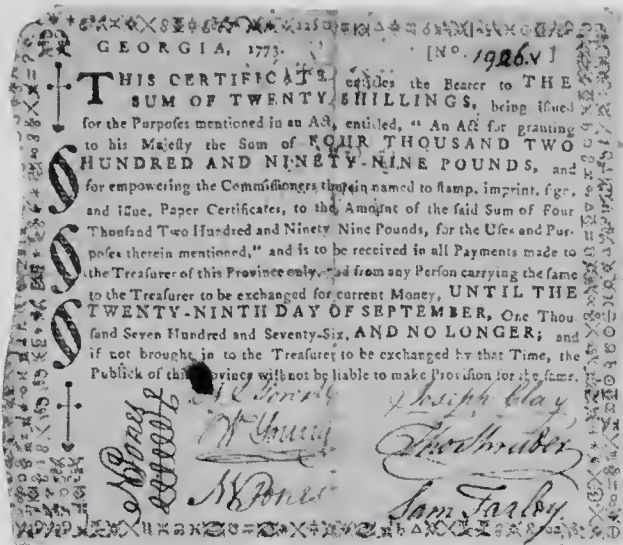 GEORGIA, 1773. [No. 1926.v]
THIS CERTIFICATE entitles the Bearer to THE
SUM OF TWENTY SHILLINGS, being issued
for the Purposes mentioned in an Act, entitled, " An Act for granting
to his Majesty the Sum of FOUR THOUSAND TWO
HUNDRED AND NINETY-NINE POUNDS, and
for empowering the Commissioners therein named to stamp, imprint, sign,
and issue, Paper Certificates, to the Amount of the said Sum of Four
Thousand Two Hundred and Ninety Nine Pounds, for the Uses and Pur-
poses therein mentioned," and is to be received in all Payments made to
the Treasurer of this Province only, and from any Person carrying the same
to the Treasurer to be exchanged for current Money, UNTIL THE
TWENTY-NINTH DAY OF SEPTEMBER, One Thou-
sand Seven Hundred and Seventy-Six, AND NO LONGER; and
if not brought in to the Treasurer to be exchanged by that Time, the
Publick of this Province will not be liable to make Provision for the same.
N Jones
Joseph Clay
Wm Young
N Jones
Sam Farley